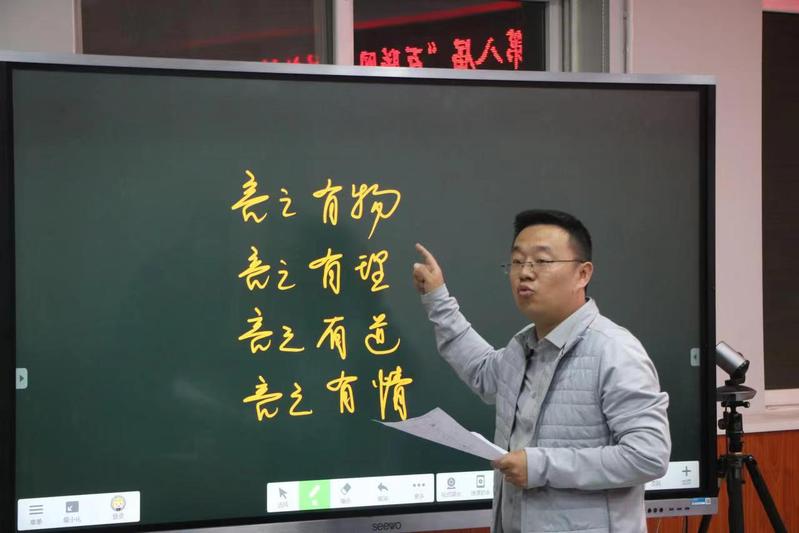 第八届“互联网
言之有物
言之有理
言之有道
言之有情
菜单 最小化 登录 选择 笔 更多
seewo